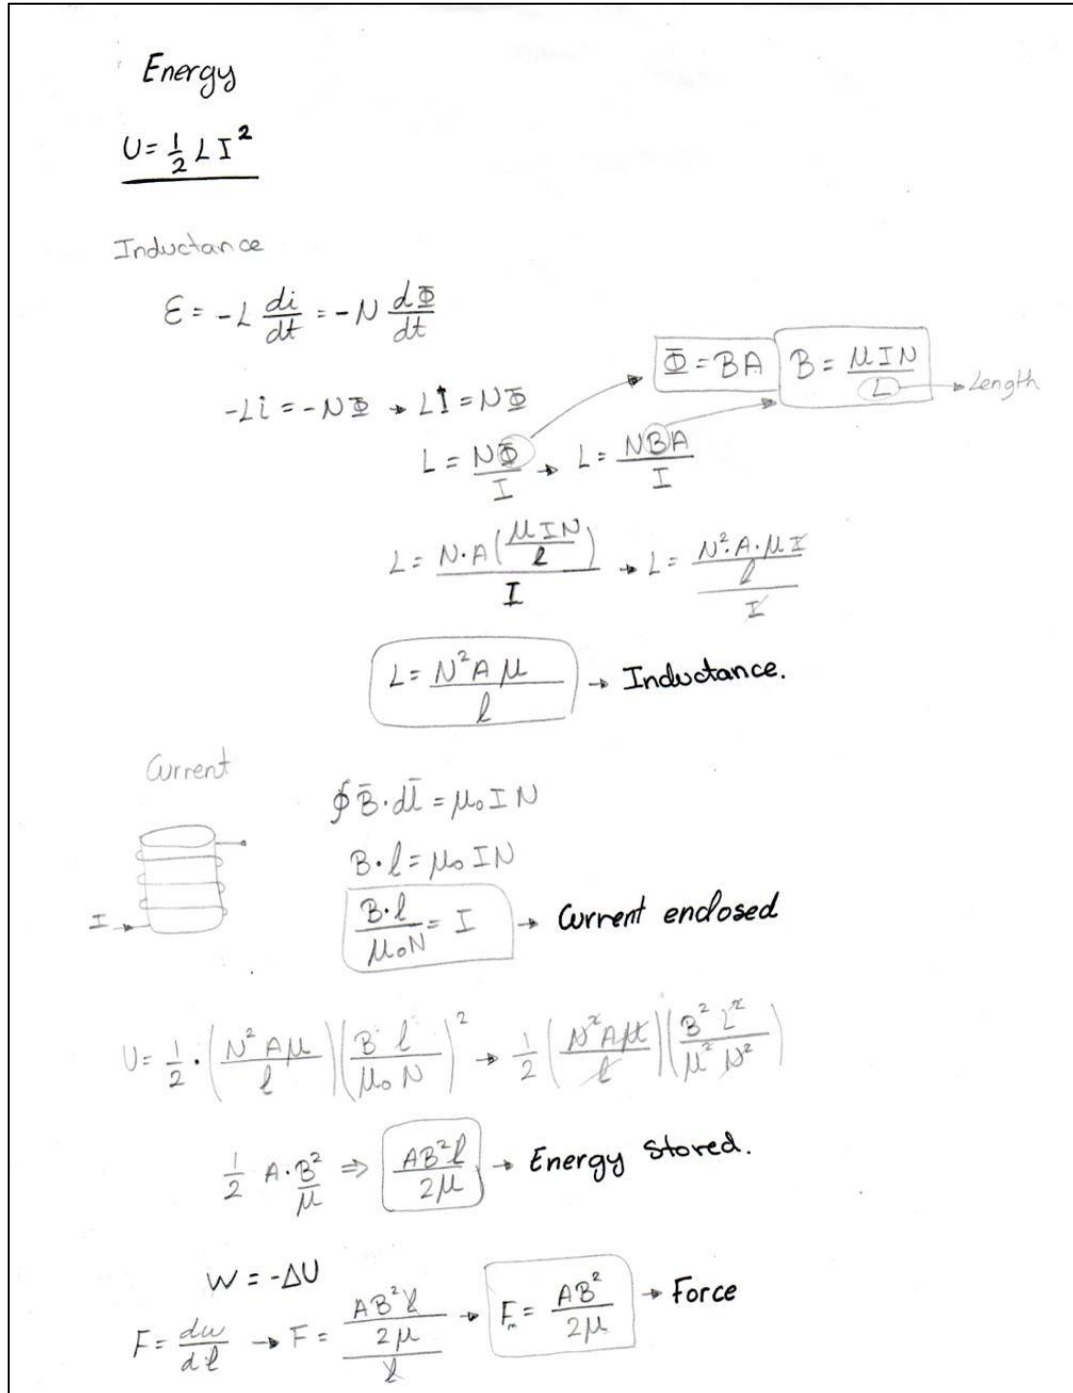 Energy
U = 1/2 L I²
Inductance
ε = -L di/dt = -N dΦ/dt
Φ = BA   B = μIN/L → Length
-Li = -NΦ → LI = NΦ
L = NΦ/I → L = NBA/I
L = N·A(μIN/ℓ)/I → L = (N²·A·μI/ℓ)/I
L = N²Aμ/ℓ → Inductance.
Current
∮B̄·dl̄ = μ₀IN
B·ℓ = μ₀IN
B·ℓ/μ₀N = I → Current enclosed
I →
U = 1/2 · (N²Aμ/ℓ)(B ℓ/μ₀N)² → 1/2 (N²Aμ/ℓ)(B² L²/μ² N²)
1/2 A·B²/μ ⇒ AB²ℓ/2μ → Energy stored.
W = -ΔU
F = dw/dℓ → F = (AB²ℓ/2μ)/ℓ → Fₘ = AB²/2μ → Force